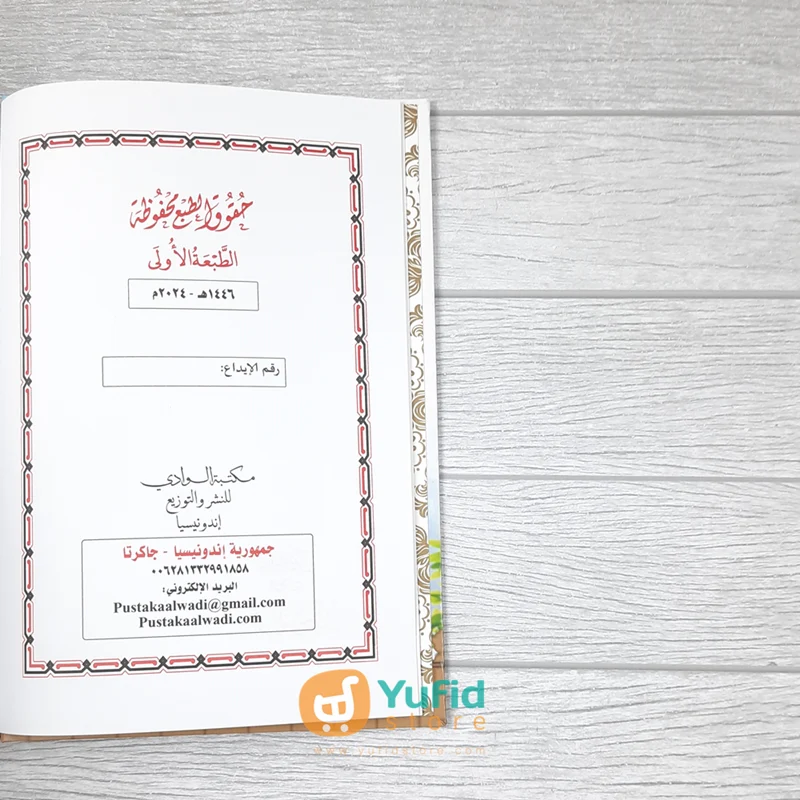 حُقُوقُ الطَّبْعِ مَحْفُوظَة
الطَّبْعَةُ الأُولَى
١٤٤٦هـ - ٢٠٢٤م
رقم الإيداع:
مكتبة الوادي
للنشر والتوزيع
إندونيسيا
جمهورية إندونيسيا - جاكرتا
٠٠٦٢٨١٣٣٢٩٩١٨٥٨
البريد الإلكتروني:
Pustakaalwadi@gmail.com
Pustakaalwadi.com
YuFid
store
www.yufidstore.com